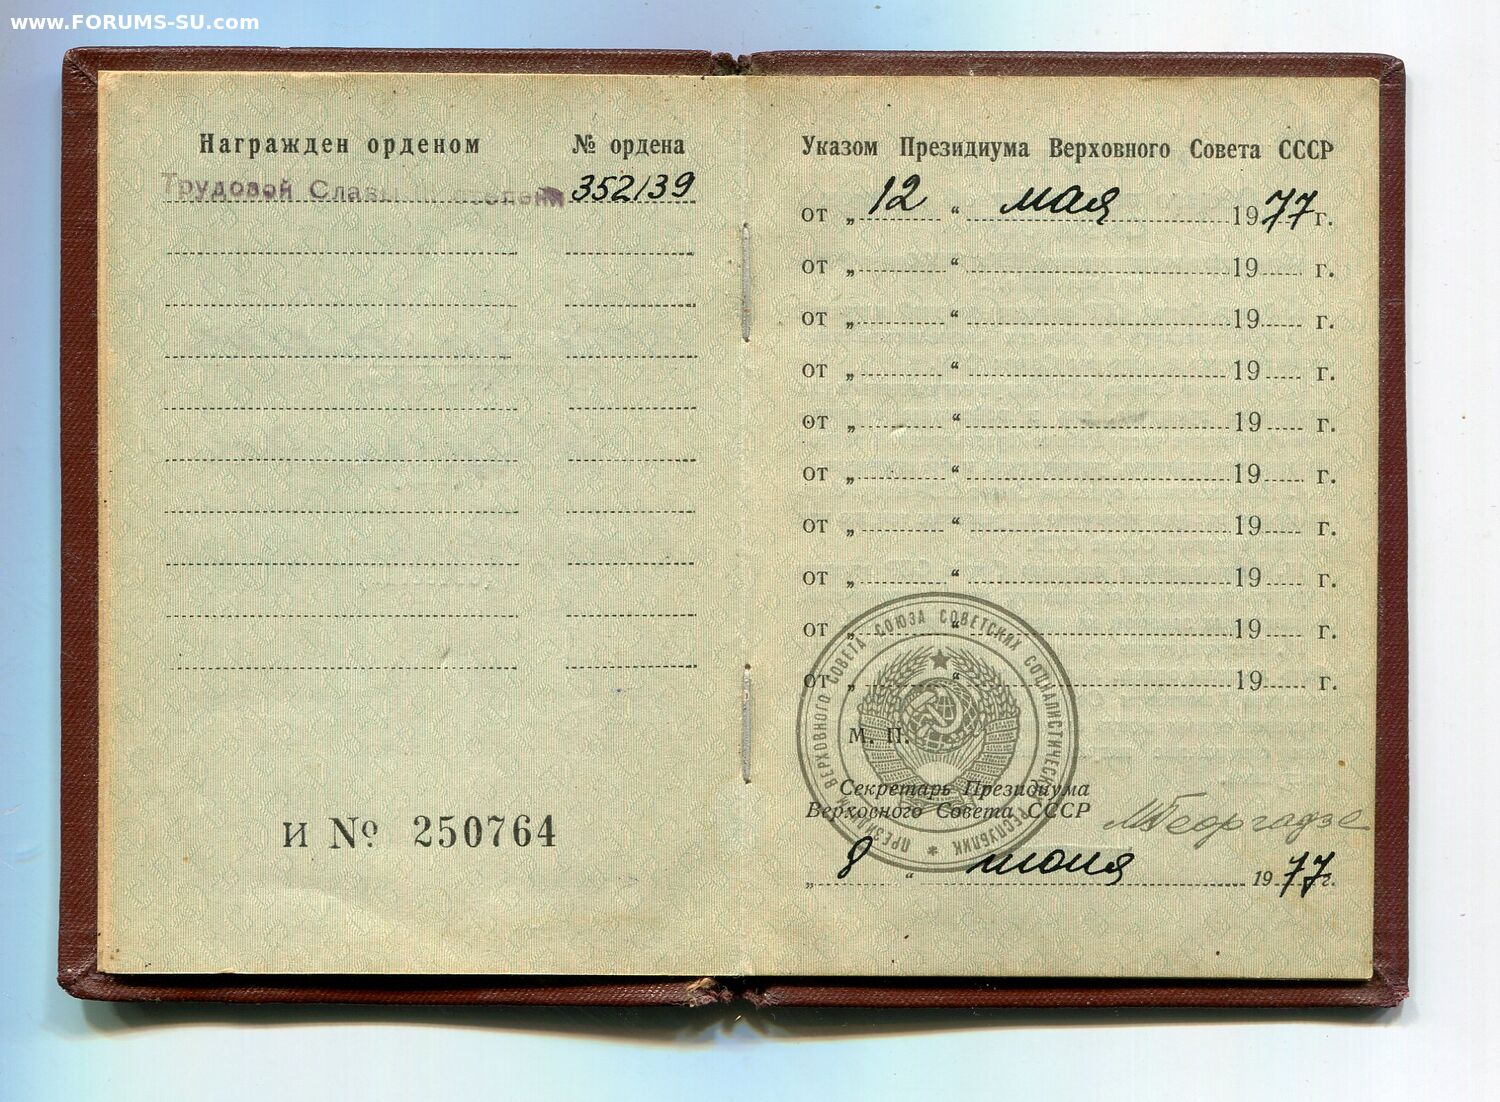 www.FORUMS-SU.com
Награжден орденом № ордена
Трудовой Славы степени 352139
И № 250764
Указом Президиума Верховного Совета СССР
от „ 12 “ мая 1977 г.
от „ “ 19 г.
от „ “ 19 г.
от „ “ 19 г.
от „ “ 19 г.
от „ “ 19 г.
от „ “ 19 г.
от „ “ 19 г.
от „ “ 19 г.
от „ “ 19 г.
М. П.
ПРЕЗИДИУМ ВЕРХОВНОГО СОВЕТА СОЮЗА СОВЕТСКИХ СОЦИАЛИСТИЧЕСКИХ РЕСПУБЛИК
Секретарь Президиума
Верховного Совета СССР МГеоргадзе
„ 8 “ июня 1977 г.